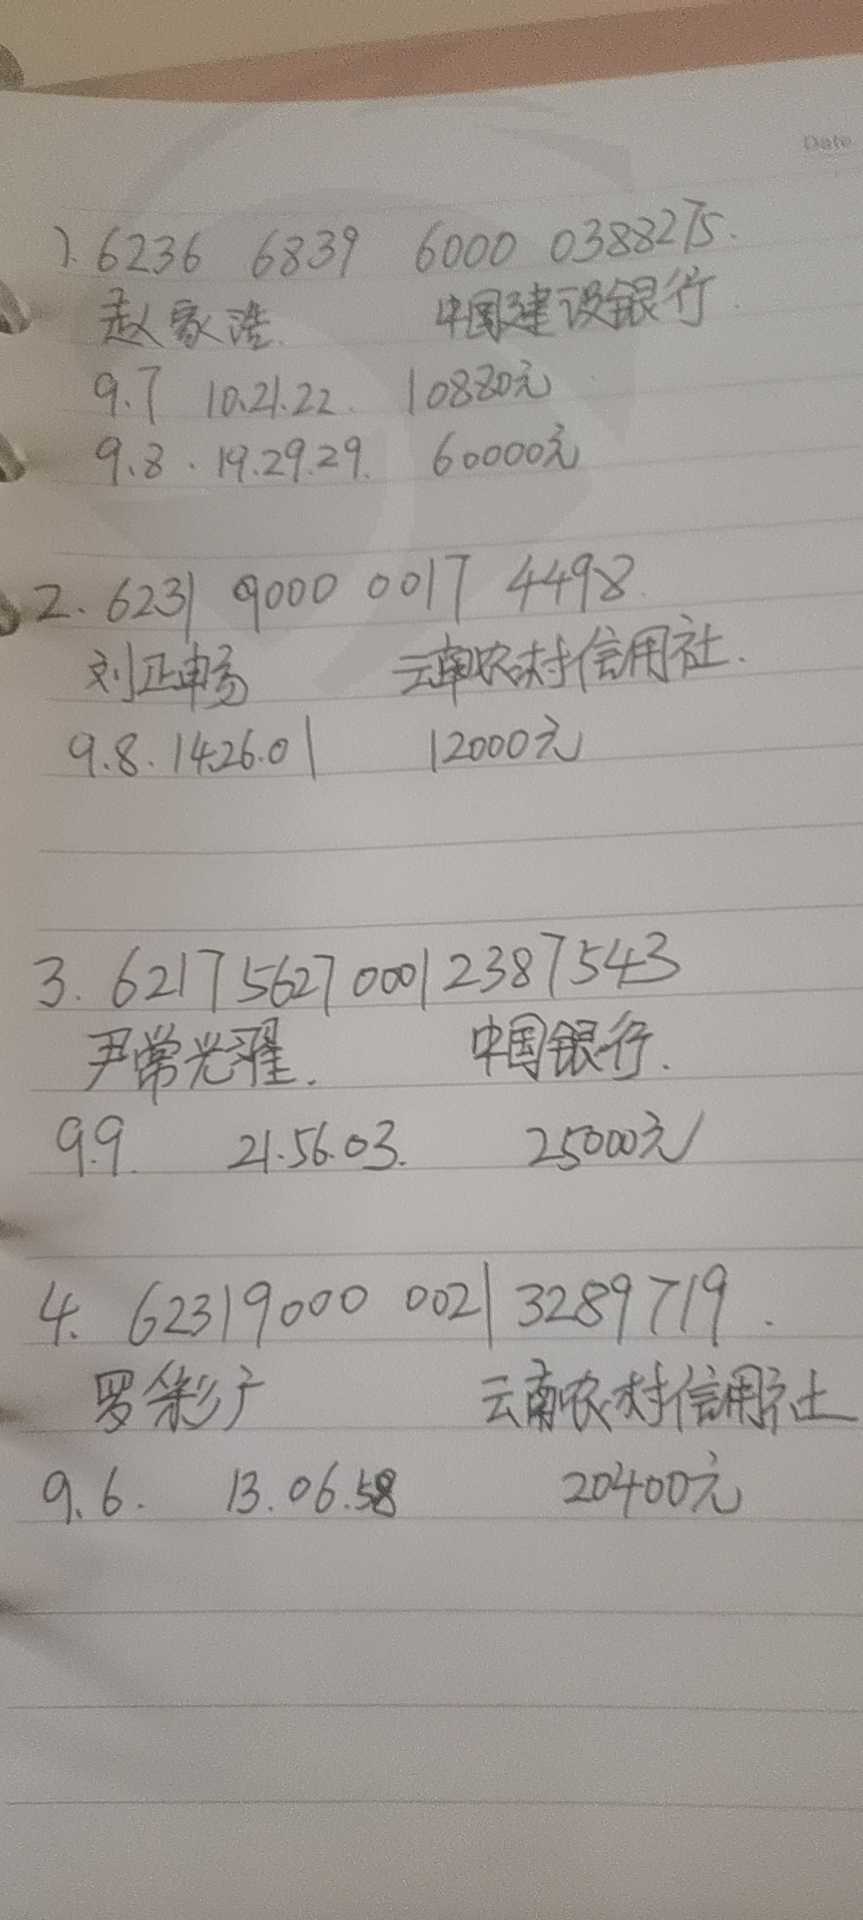 Date
1. 6236 6839 6000 0388275.
赵家浩. 中国建设银行.
9.7 10.21.22. 10880元
9.8. 19.29.29. 60000元
2. 6231 9000 0017 4498.
刘正畅 云南农村信用社.
9.8. 14.26.01 12000元
3. 6217 5627 0001 2387543
尹常光耀. 中国银行.
9.9. 21.56.03. 25000元
4. 6231 9000 0021 3289719.
罗彩广 云南农村信用社
9.6. 13.06.58 20400元